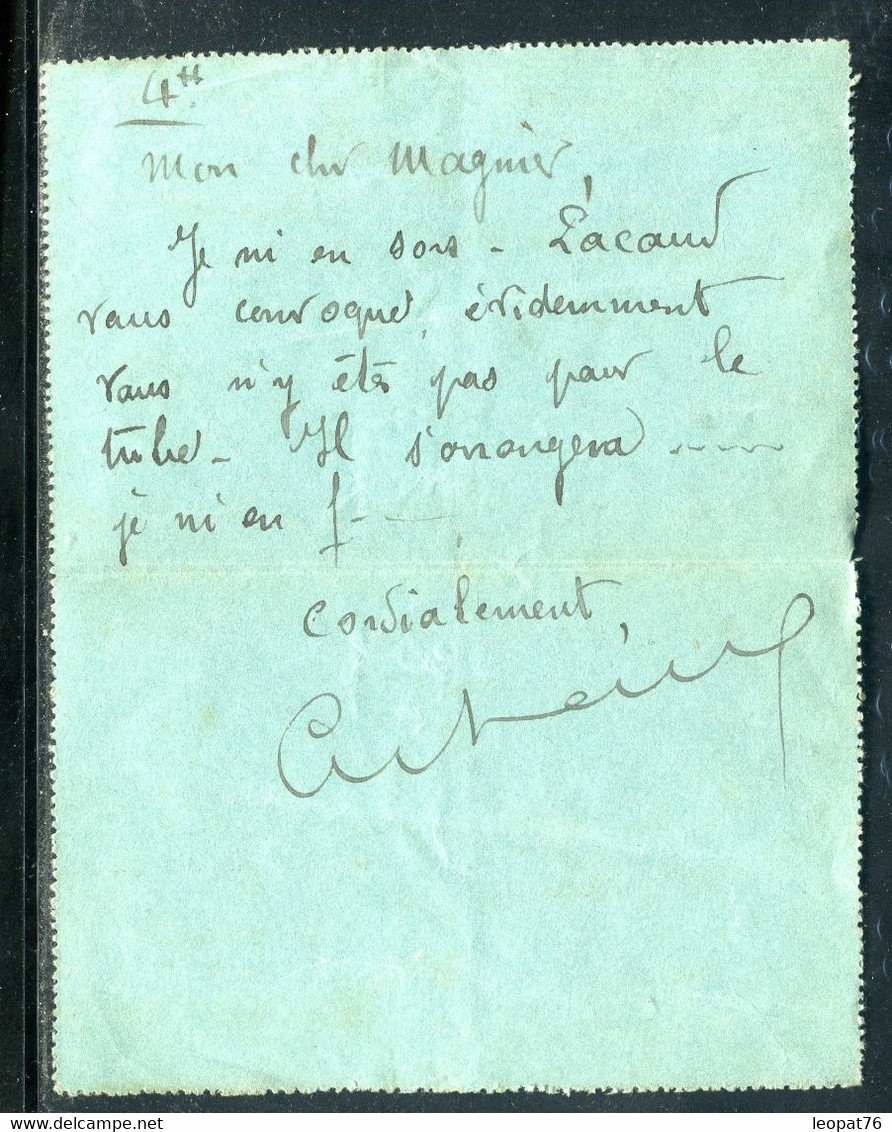 4H
Mon cher Magnier,
Je m'en sors - Lacaud
vous convoque, évidemment
vous n'y êtes pas pour le
tube - Il s'arrangera .....
je m'en f - -
Cordialement,
delcampe.net
leopat76